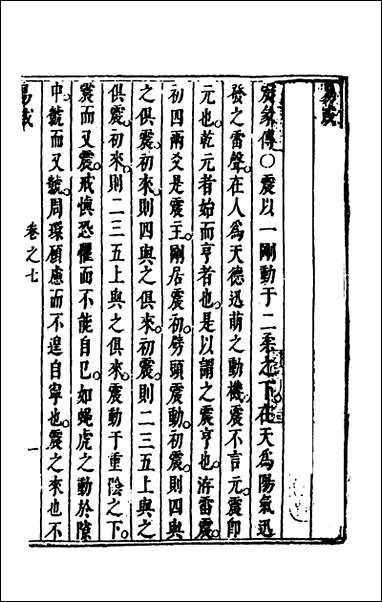 易或
彖傳○震以一剛動于二柔之下在天為陽氣迅
發之雷聲在人為天德迅萌之動機。震不言元。震即
元也。乾元者始而亨者也。是以謂之震亨也。洊雷震。
初四兩爻是震主。剛居震初。劈頭震動。初震。則四與
之俱震。初來。則四與之俱來。初震。則二三五上與之
俱震。初來。則二三五上與之俱來。震動于重陰之下。
震而又震。戒慎恐懼而不能自已。如蠅虎之動於隙
中。虩而又虩。周環顧慮而不遑自寧也。震之來也不
易或 卷之七 一